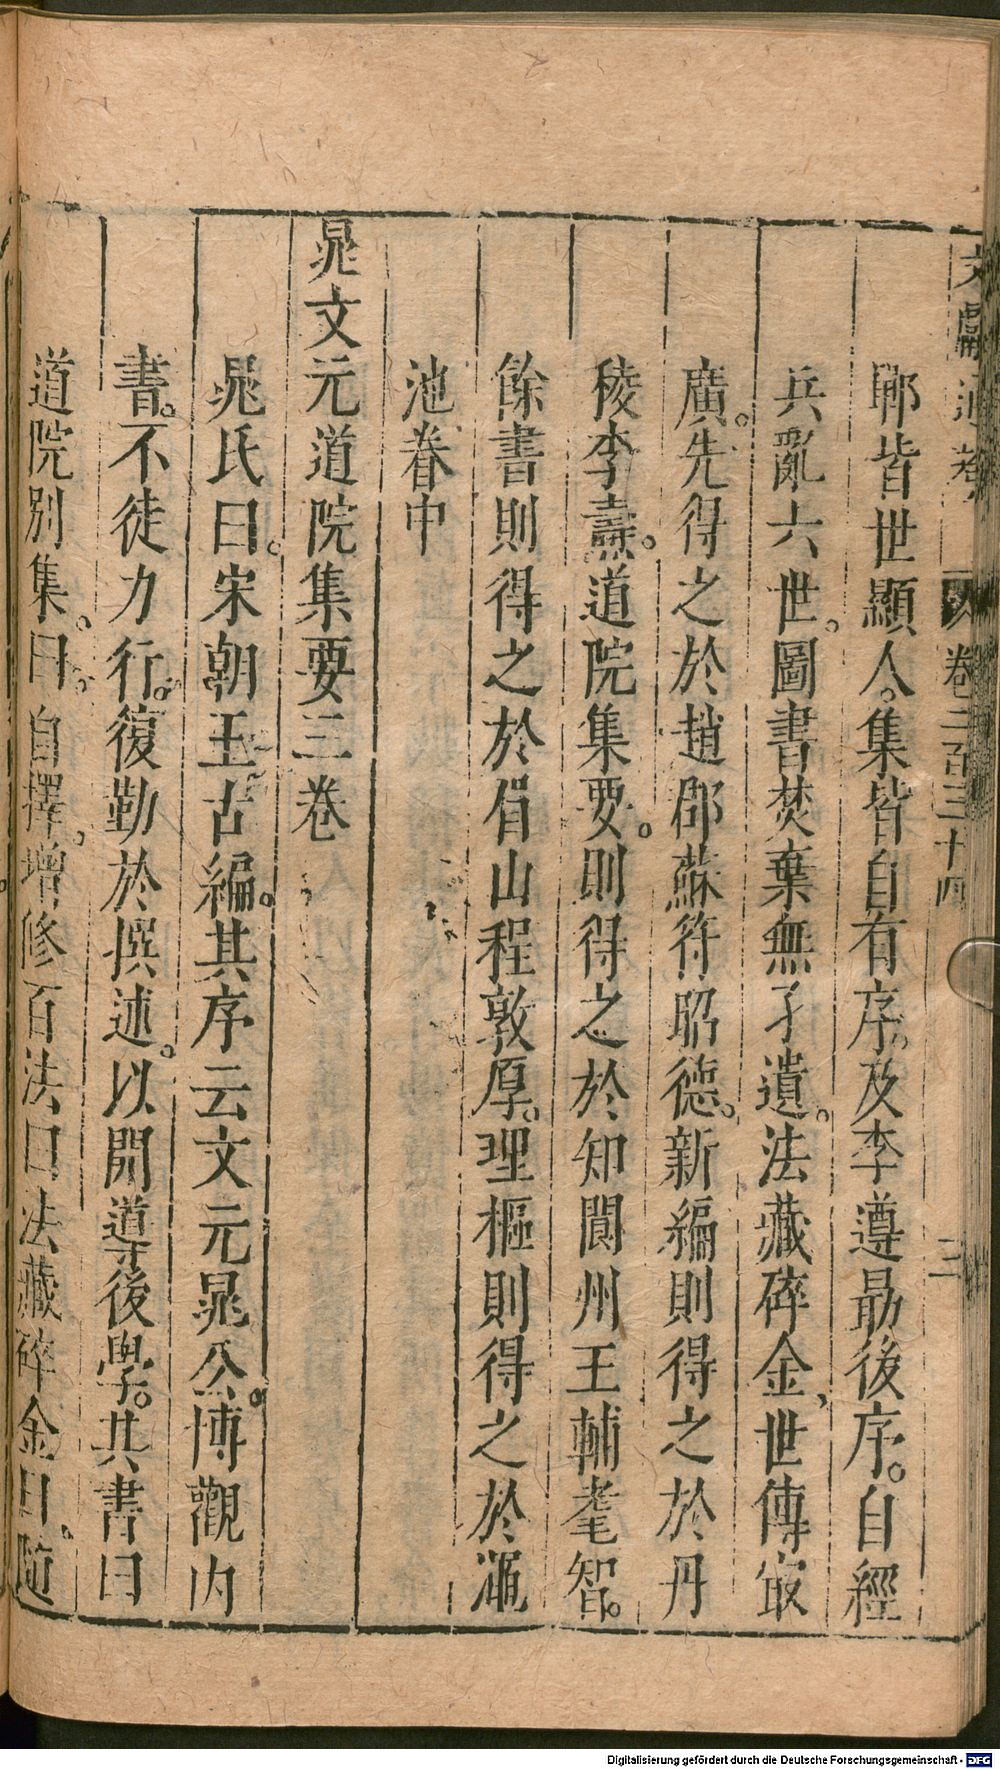 文獻通考 卷二百三十四 二
郷皆世顯人。集皆自有序。及李遵勗後序。自經
兵亂六世。圖書焚棄無孑遺。法藏碎金、世傳㝡
廣。先得之於趙郡蘇符。昭德新編則得之於丹
稜李燾。道院集要。則得之於知閬州王輔耄智。
餘書則得之於眉山程敦厚。理樞則得之於澠
池眷中
晁文元道院集要三卷
晁氏曰。宋朝王古編。其序云文元晁公。博觀內
書。不徒力行。復勤於撰述。以開導後學。其書曰
道院別集。曰。自擇。增修百法。曰法藏碎金。曰隨
Digitalisierung gefördert durch die Deutsche Forschungsgemeinschaft - DFG